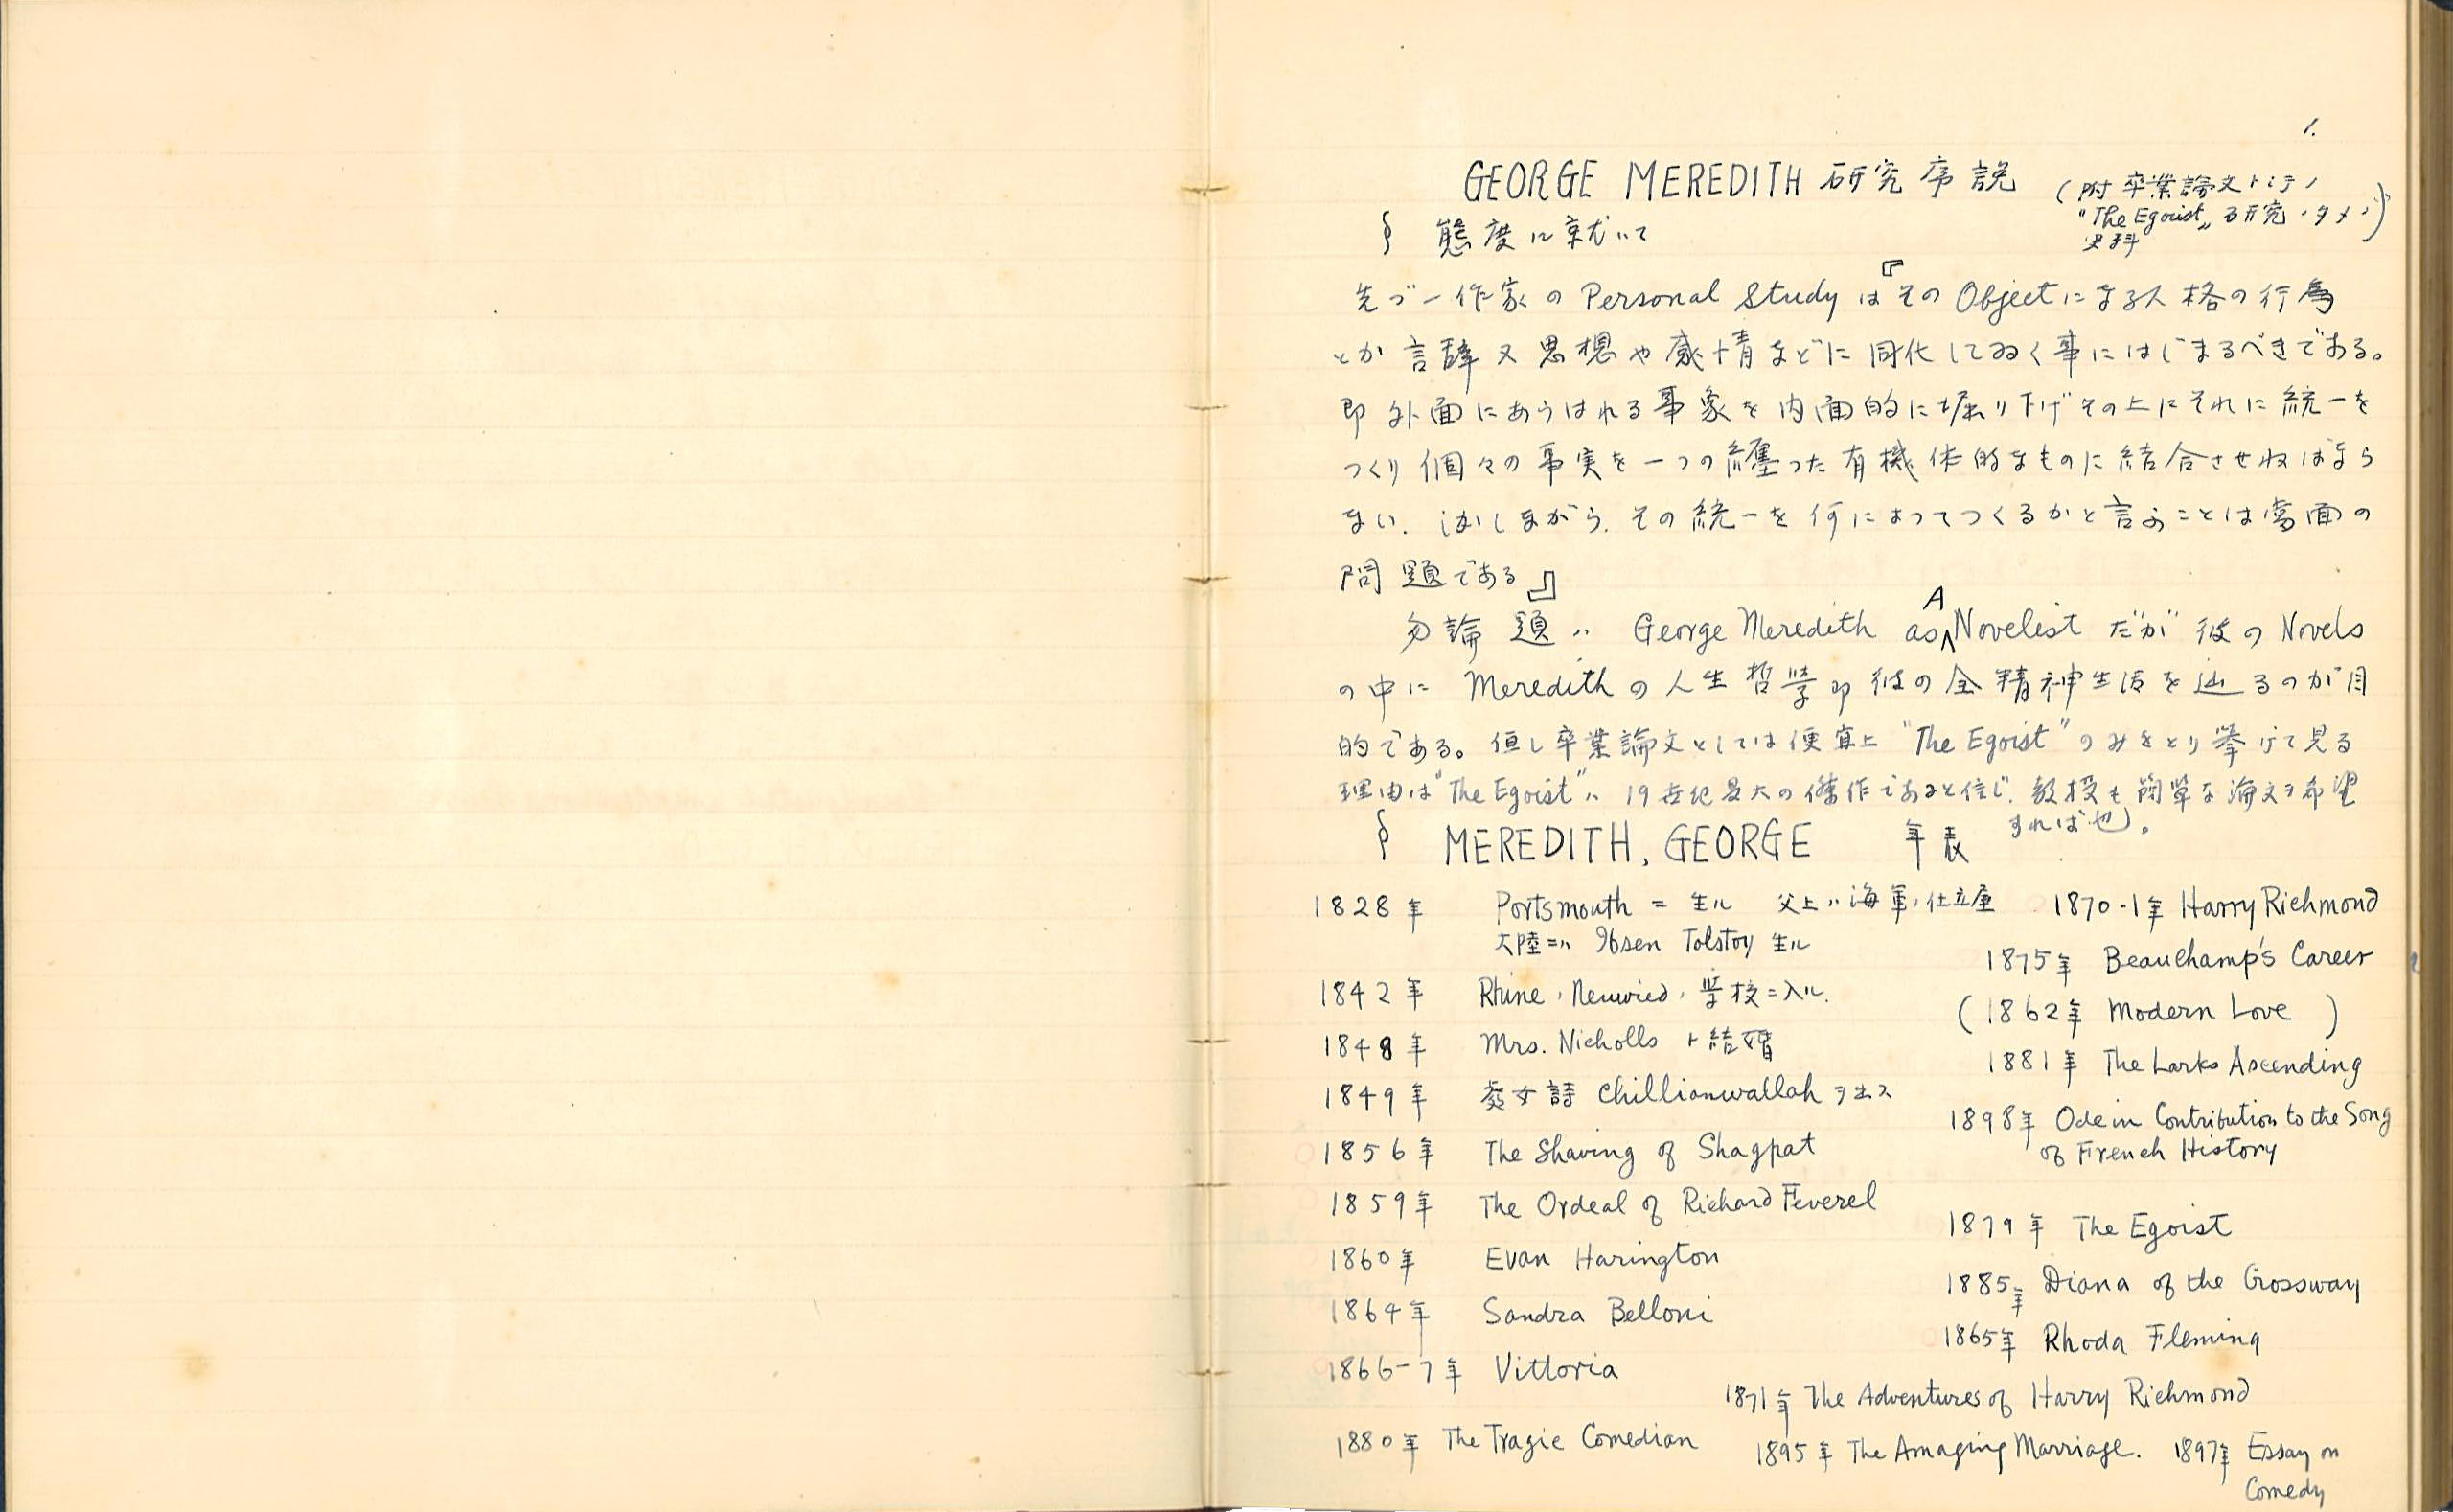 1.
GEORGE MEREDITH 研究序説
(附 卒業論文トシテノ
"The Egoist" 研究ノタメノ
史料)
§ 態度に就いて
先づ一作家の Personal Study は『その Object になる人格の行為
とか言辞又思想や感情などに同化してゆく事にはじまるべきである。
即外面にあらはれる事象を内面的に堀り下げその上にそれに統一を
つくり個々の事実を一つの纏つた有機体的なものに結合させねばなら
ない. しかしながら. その統一を何によってつくるかと言ふことは當面の
問題である』
勿論 題ハ George Meredith as A Novelist だが彼の Novels
の中に Meredith の人生哲學即彼の全精神生活を辿るのが目
的である。但し卒業論文としては便宜上 "The Egoist" のみをとり挙げて見る
理由は "The Egoist" ハ 19世紀最大の傑作であると信じ. 教授も簡單な論文ヲ希望
すれば也。
§ MEREDITH, GEORGE 年表
1828年 Portsmouth ニ 生ル 父上ハ海軍ノ仕立屋
大陸ニハ Ibsen Tolstoy 生ル
1842年 Rhine ノ Neuwied ノ 學校ニ入ル.
1848年 Mrs. Nicholls ト結婚
1849年 処女詩 Chillianwallah ヲ出ス
1856年 The Shaving of Shagpat
1859年 The Ordeal of Richard Feverel
1860年 Evan Harington
1864年 Sandra Belloni
1866-7年 Vittoria
1880年 The Tragic Comedian
1870-1年 Harry Richmond
1875年 Beauchamp's Career
(1862年 Modern Love )
1881年 The Larks Ascending
1898年 Ode in Contribution to the Song
of French History
1879年 The Egoist
1885年 Diana of the Crossway
1865年 Rhoda Fleming
1871年 The Adventures of Harry Richmond
1895年 The Amaging Marriage. 1897年 Essay on
Comedy